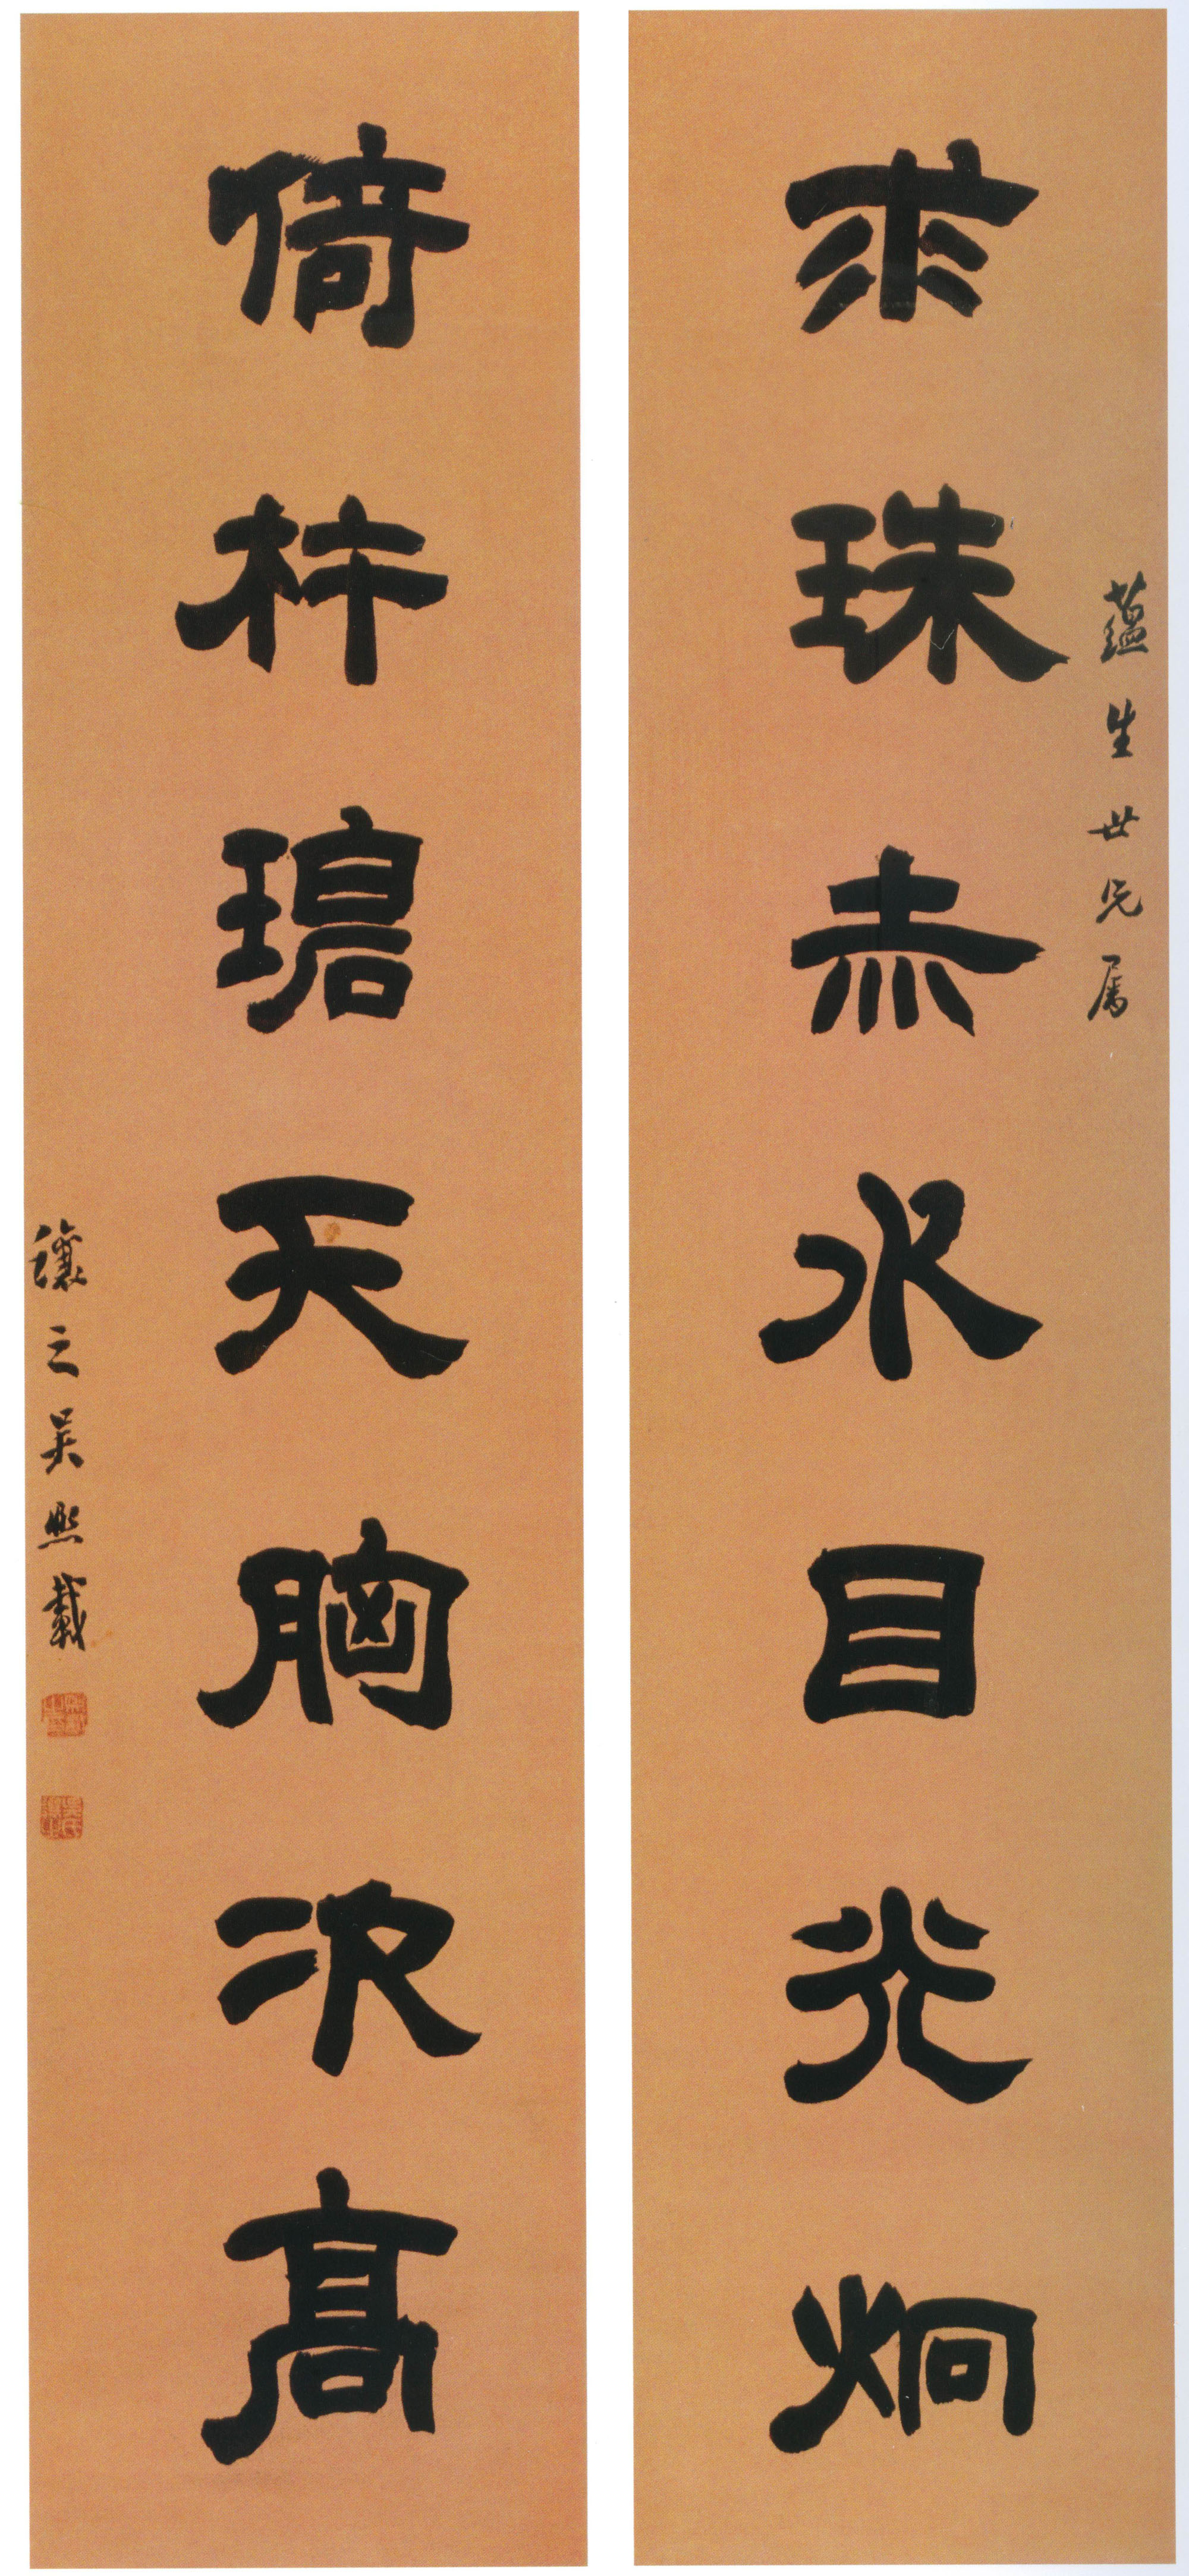 蘊生世兄属
求珠赤水目光炯
倚杵碧天胸次高
讓之吳熙載